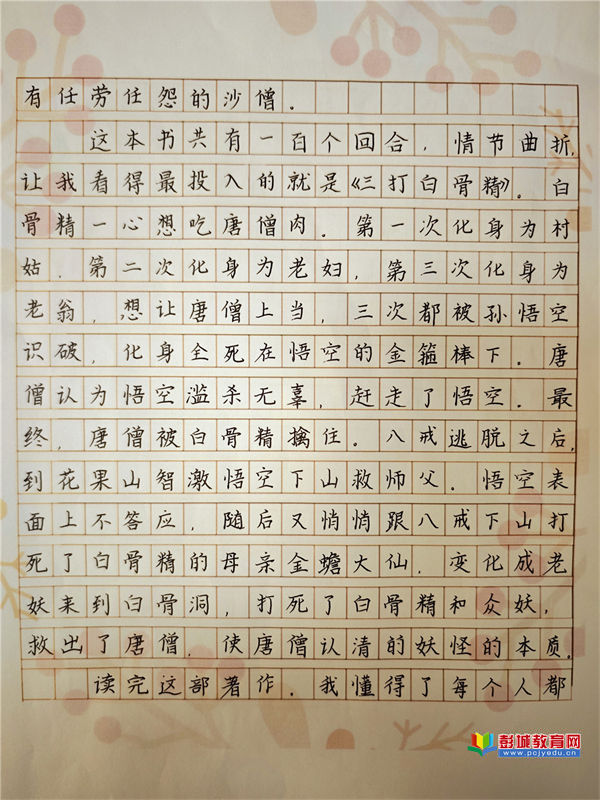 有任劳任怨的沙僧。
这本书共有一百个回合，情节曲折，
让我看得最投入的就是《三打白骨精》。白
骨精一心想吃唐僧肉。第一次化身为村
姑，第二次化身为老妇，第三次化身为
老翁，想让唐僧上当，三次都被孙悟空
识破，化身全死在悟空的金箍棒下。唐
僧认为悟空滥杀无辜，赶走了悟空。最
终，唐僧被白骨精擒住。八戒逃脱之后，
到花果山智激悟空下山救师父。悟空表
面上不答应，随后又悄悄跟八戒下山打
死了白骨精的母亲金蟾大仙，变化成老
妖来到白骨洞，打死了白骨精和众妖，
救出了唐僧，使唐僧认清的妖怪的本质。
读完这部著作，我懂得了每个人都
彭城教育网
www.pcjyedu.cn